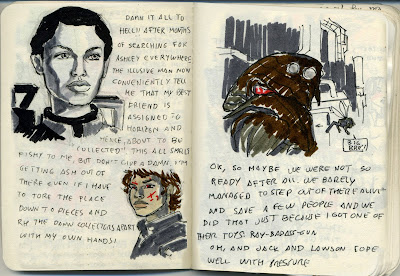 DAMN IT ALL TO
HELL!! AFTER MONTHS
OF SEARCHING FOR
ASHLEY EVERYWHERE
THE ILLUSIVE MAN NOW
CONVENIENTLY TELL
ME THAT MY BEST
FRIEND IS
ASSIGNED TO
HORIZON AND
HENCE, ABOUT TO BE
"COLLECTED". THIS ALL SMELLS
FISHY TO ME, BUT DON'T GIVE A DAMN. I'M
GETTING ASH OUT OF
THERE EVEN IF I HAVE
TO TORE THE PLACE
DOWN TO PIECES AND
RIP THE DAMN COLLECTORS APART
WITH MY OWN HANDS!
BIG
BUG!
OK, SO MAYBE WE WERE NOT SO
READY AFTER ALL. WE BARELY
MANAGED TO STEP OUT OF THERE ALIVE
AND SAVE A FEW PEOPLE AND WE
DID THAT JUST BECAUSE I GOT ONE OF
THEIR TOYS: RAY-BADASS-GUN.
OH, AND JACK AND LAWSON COPE
WELL WITH PRESSURE